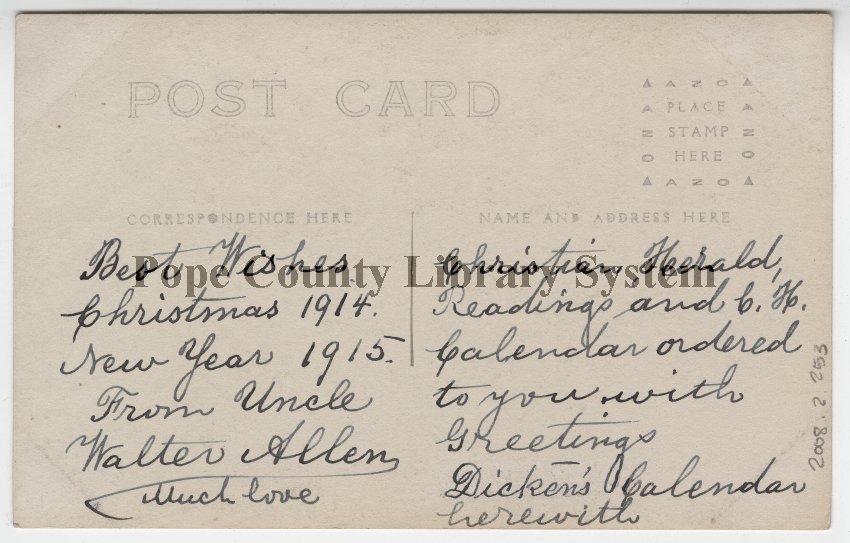 POST CARD
AZO
PLACE
STAMP
HERE
AZO
CORRESPONDENCE HERE
NAME AND ADDRESS HERE
Best Wishes
Christmas 1914.
New Year 1915.
From Uncle
Walter Allen
Much love
Christian Herald,
Readings and C. H.
Calendar ordered
to you with
Greetings
Dicken's Calendar
herewith
Pope County Library System
2008.2.253